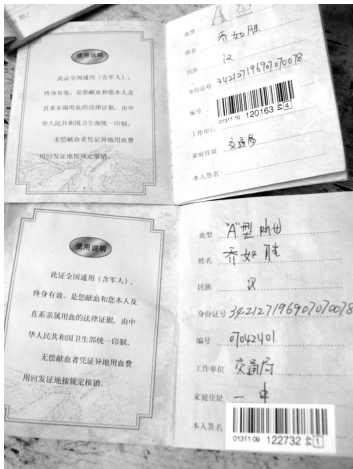 使用说明
此证全国通用（含军人），
终身有效，是您献血和您本人及
直系亲属用血的法律证据，由中
华人民共和国卫生部统一印制。
无偿献血者凭证异地用血费
用回发证地按规定报销。
A
血型
姓名 乔如胜
民族 汉
身份证号 342127196907070078
编号
01311 10 120163 4
工作单位
交通局
家庭住址
本人签名
使用说明
此证全国通用（含军人），
终身有效，是您献血和您本人及
直系亲属用血的法律证据，由中
华人民共和国卫生部统一印制。
无偿献血者凭证异地用血费
用回发证地按规定报销。
血型 "A"型 Rh(+)
姓名 乔如胜
民族 汉
身份证号 342127196907070078
编号 07042401
工作单位 交通局
家庭住址 一中
本人签名
01311 09 122732 1